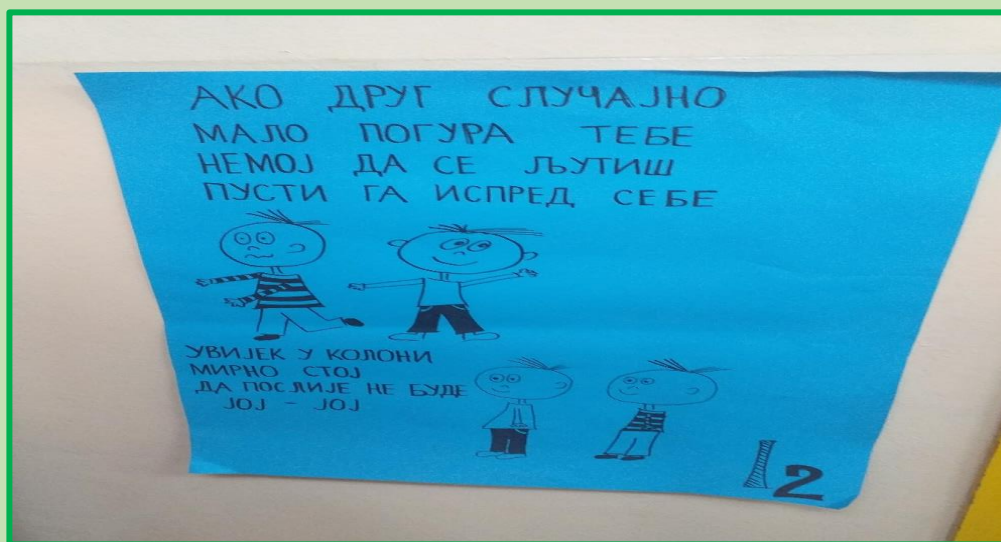 АКО ДРУГ СЛУЧАЈНО
МАЛО ПОГУРА ТЕБЕ
НЕМОЈ ДА СЕ ЉУТИШ
ПУСТИ ГА ИСПРЕД СЕБЕ
УВИЈЕК У КОЛОНИ
МИРНО СТОЈ
ДА ПОСЛИЈЕ НЕ БУДЕ
ЈОЈ - ЈОЈ
I2